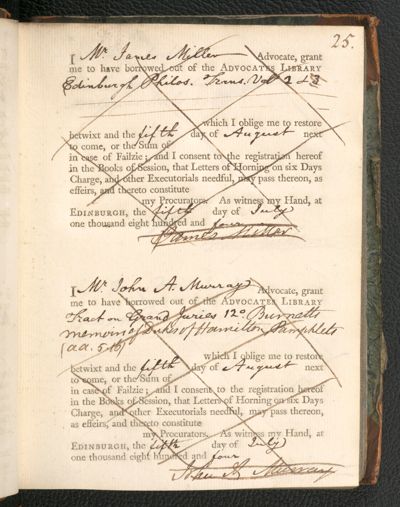 25.
I Mr. James Miller Advocate, grant
me to have borrowed out of the ADVOCATES LIBRARY
Edinburgh Philos. Trans. Vol 2 & 3
which I oblige me to restore
betwixt and the fifth day of August next
to come, or the Sum of
in case of Failzie; and I consent to the registration hereof
in the Books of Session, that Letters of Horning on six Days
Charge, and other Executorials needful, may pass thereon, as
effeirs, and thereto constitute
my Procurators. As witness my Hand, at
EDINBURGH, the fifth day of July
one thousand eight hundred and four
James Miller
I Mr John A. Murray Advocate, grant
me to have borrowed out of the ADVOCATES LIBRARY
Tract on Grand Juries 12o Burnett's
memoirs of Dukes of Hamilton, Pamphlets
which I oblige me to restore
betwixt and the fifth day of August next
to come, or the Sum of
in case of Failzie; and I consent to the registration hereof
in the Books of Session, that Letters of Horning on six Days
Charge, and other Executorials needful, may pass thereon, as
effeirs, and thereto constitute
my Procurators. As witness my Hand, at
EDINBURGH, the fifth day of July
one thousand eight hundred and four
John A. Murray